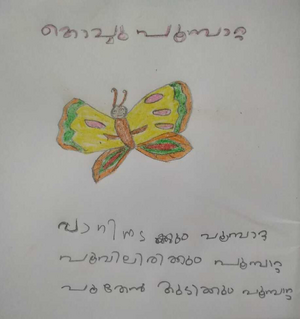 കൊച്ചു പൂമ്പാറ്റ
പാറിനടക്കും പൂമ്പാറ്റ
പൂവിലിരിക്കും പൂമ്പാറ്റ
പൂന്തേൻ കുടിക്കും പൂമ്പാറ്റ